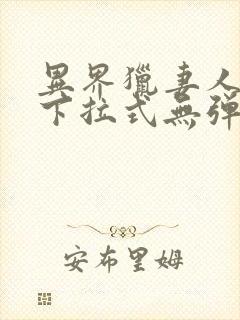 異界獵妻人
下拉式無彈
安布里姆